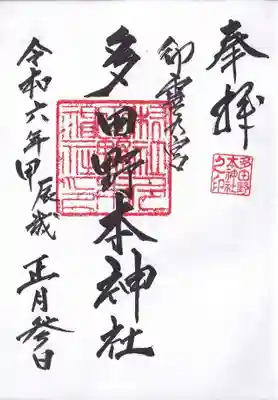 奉拝
多田野
本神社
之印
御霊宮
多田野本神社
令和六年甲辰歳 正月参日